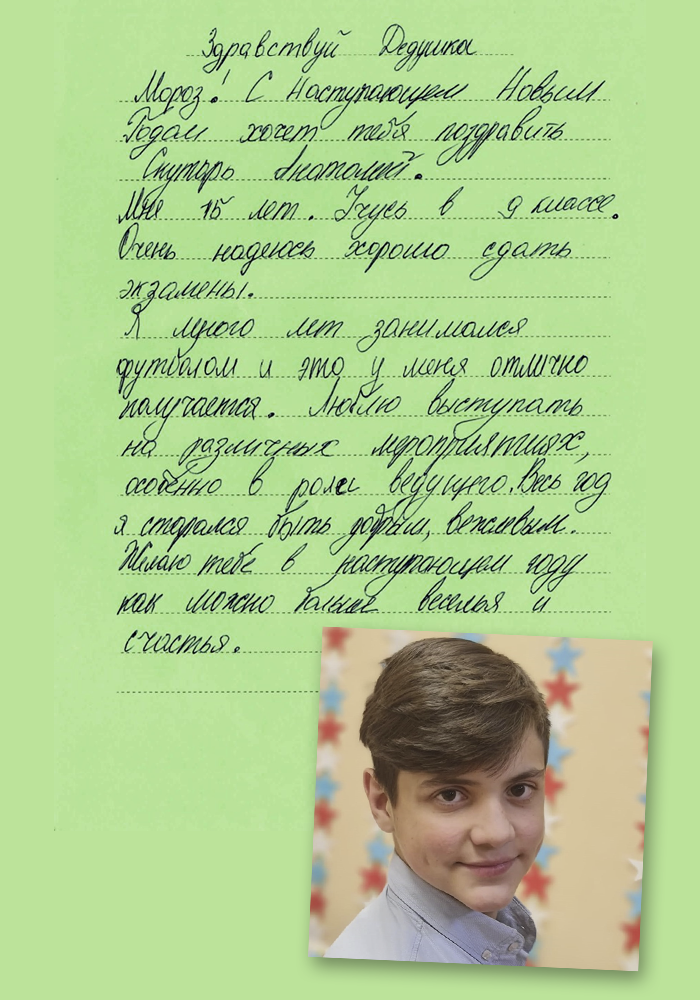 Здравствуй Дедушка
Мороз! С Наступающем Новым
Годом хочет тебя поздравить
Снутарь Анатолий.
Мне 15 лет. Учусь в 9 классе.
Очень надеюсь хорошо сдать
экзамены.
Я много лет занимался
футболом и это у меня отлично
получается. Люблю выступать
на различных мероприятиях,
особенно в роли ведущего. Весь год
я старался быть добрым, вежливым.
Желаю тебе в наступающем году
как можно больше веселья и
счастья.